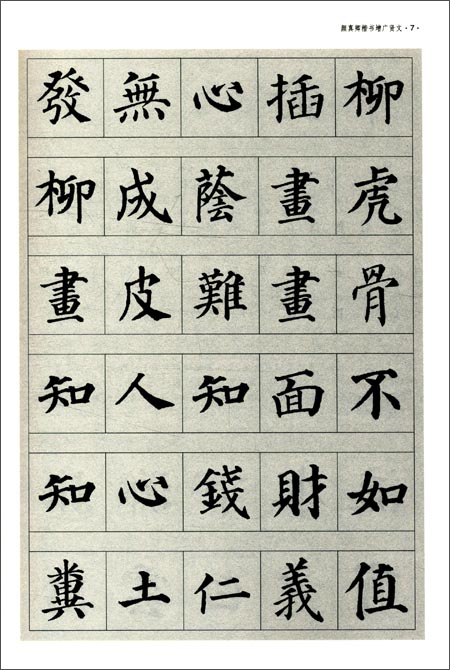 颜真卿楷书增广贤文·7·
發無心插柳
柳成蔭畫虎
畫皮難畫骨
知人知面不
知心錢財如
糞土仁義值